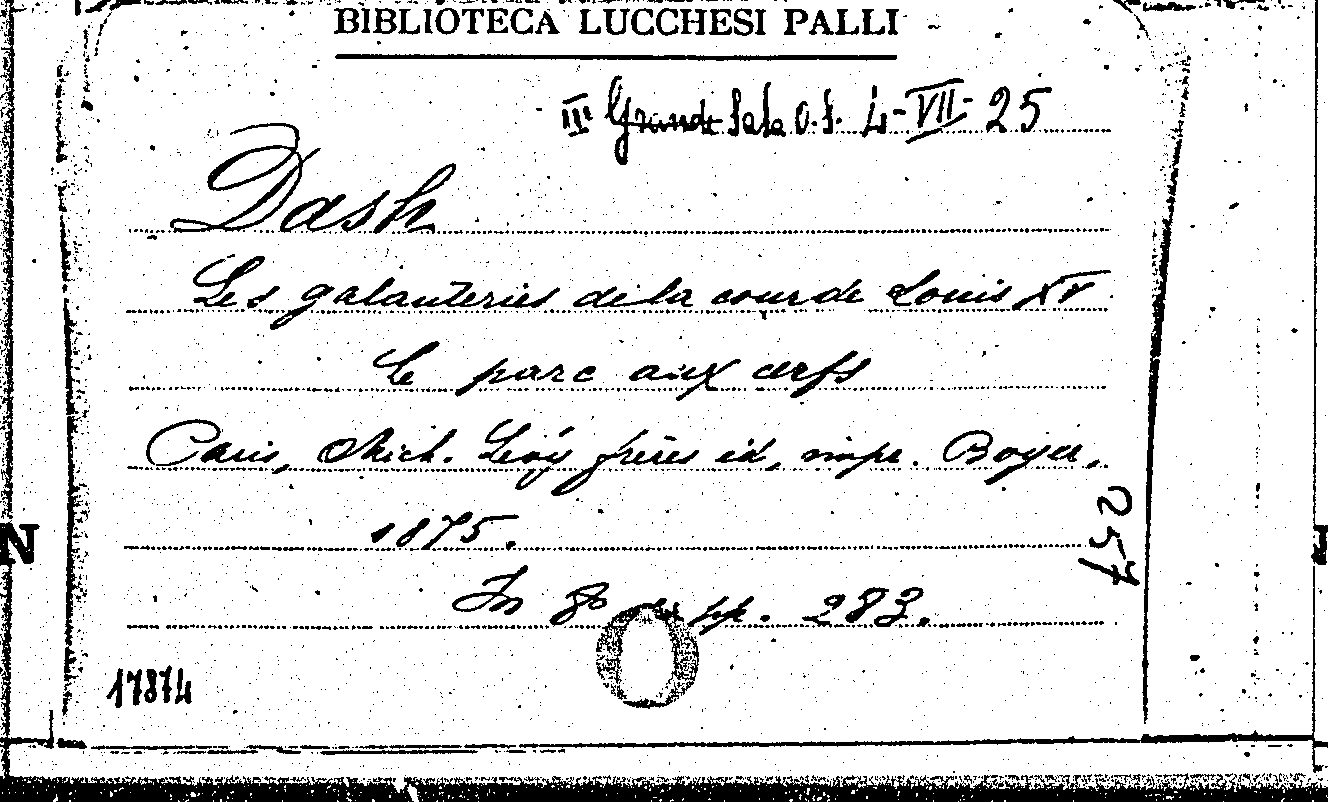 BIBLIOTECA LUCCHESI PALLI
III Grande Sala O.S. 4-VII-25
Dash
Les galanteries de la cour de Louis XV
Le parc aux cerfs
Paris, Mich. Lévy frères éd, impr. Boyer,
1875.
257
In 8° pp. 283.
17874
N